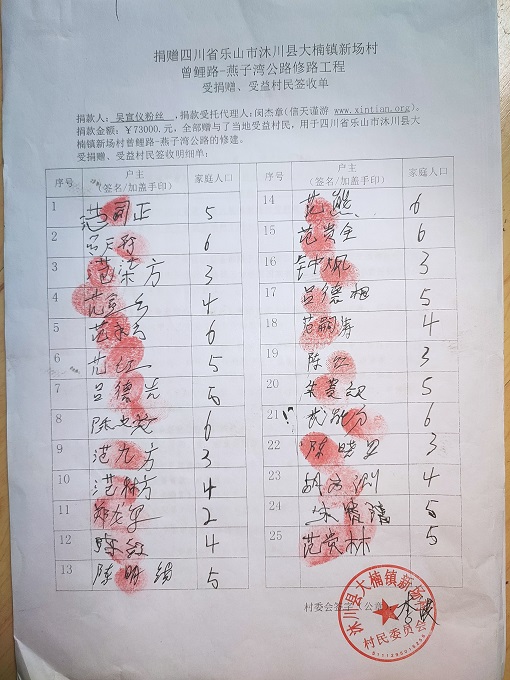 捐赠四川省乐山市沐川县大楠镇新场村
曾鲤路-燕子湾公路修路工程
受捐赠、受益村民签收单
捐款人：吴宣仪粉丝，捐款受托代理人：闵杰章(信天谨游 www.xintian.org)。
捐款金额：￥73000.元，全部赠与了当地受益村民，用于四川省乐山市沐川县大
楠镇新场村曾鲤路-燕子湾公路的修建。
受捐赠、受益村民签收明细单：
序号 户主（签名/加盖手印） 家庭人口
1 范司正 5
2 6
3 范荣方 3
4 4
5 6
6 范红 5
7 吕德光 5
8 6
9 范九方 3
10 范林方 4
11 2
12 陈红 4
13 5
序号 户主（签名/加盖手印） 家庭人口
14 范熊 6
15 范贵全 6
16 3
17 吕德相 5
18 范嗣涛 4
19 陈红 3
20 5
21 6
22 3
23 4
24 5
25 范贵林 5
村委会签字（公章）
沐川县大楠镇新场村
村民委员会